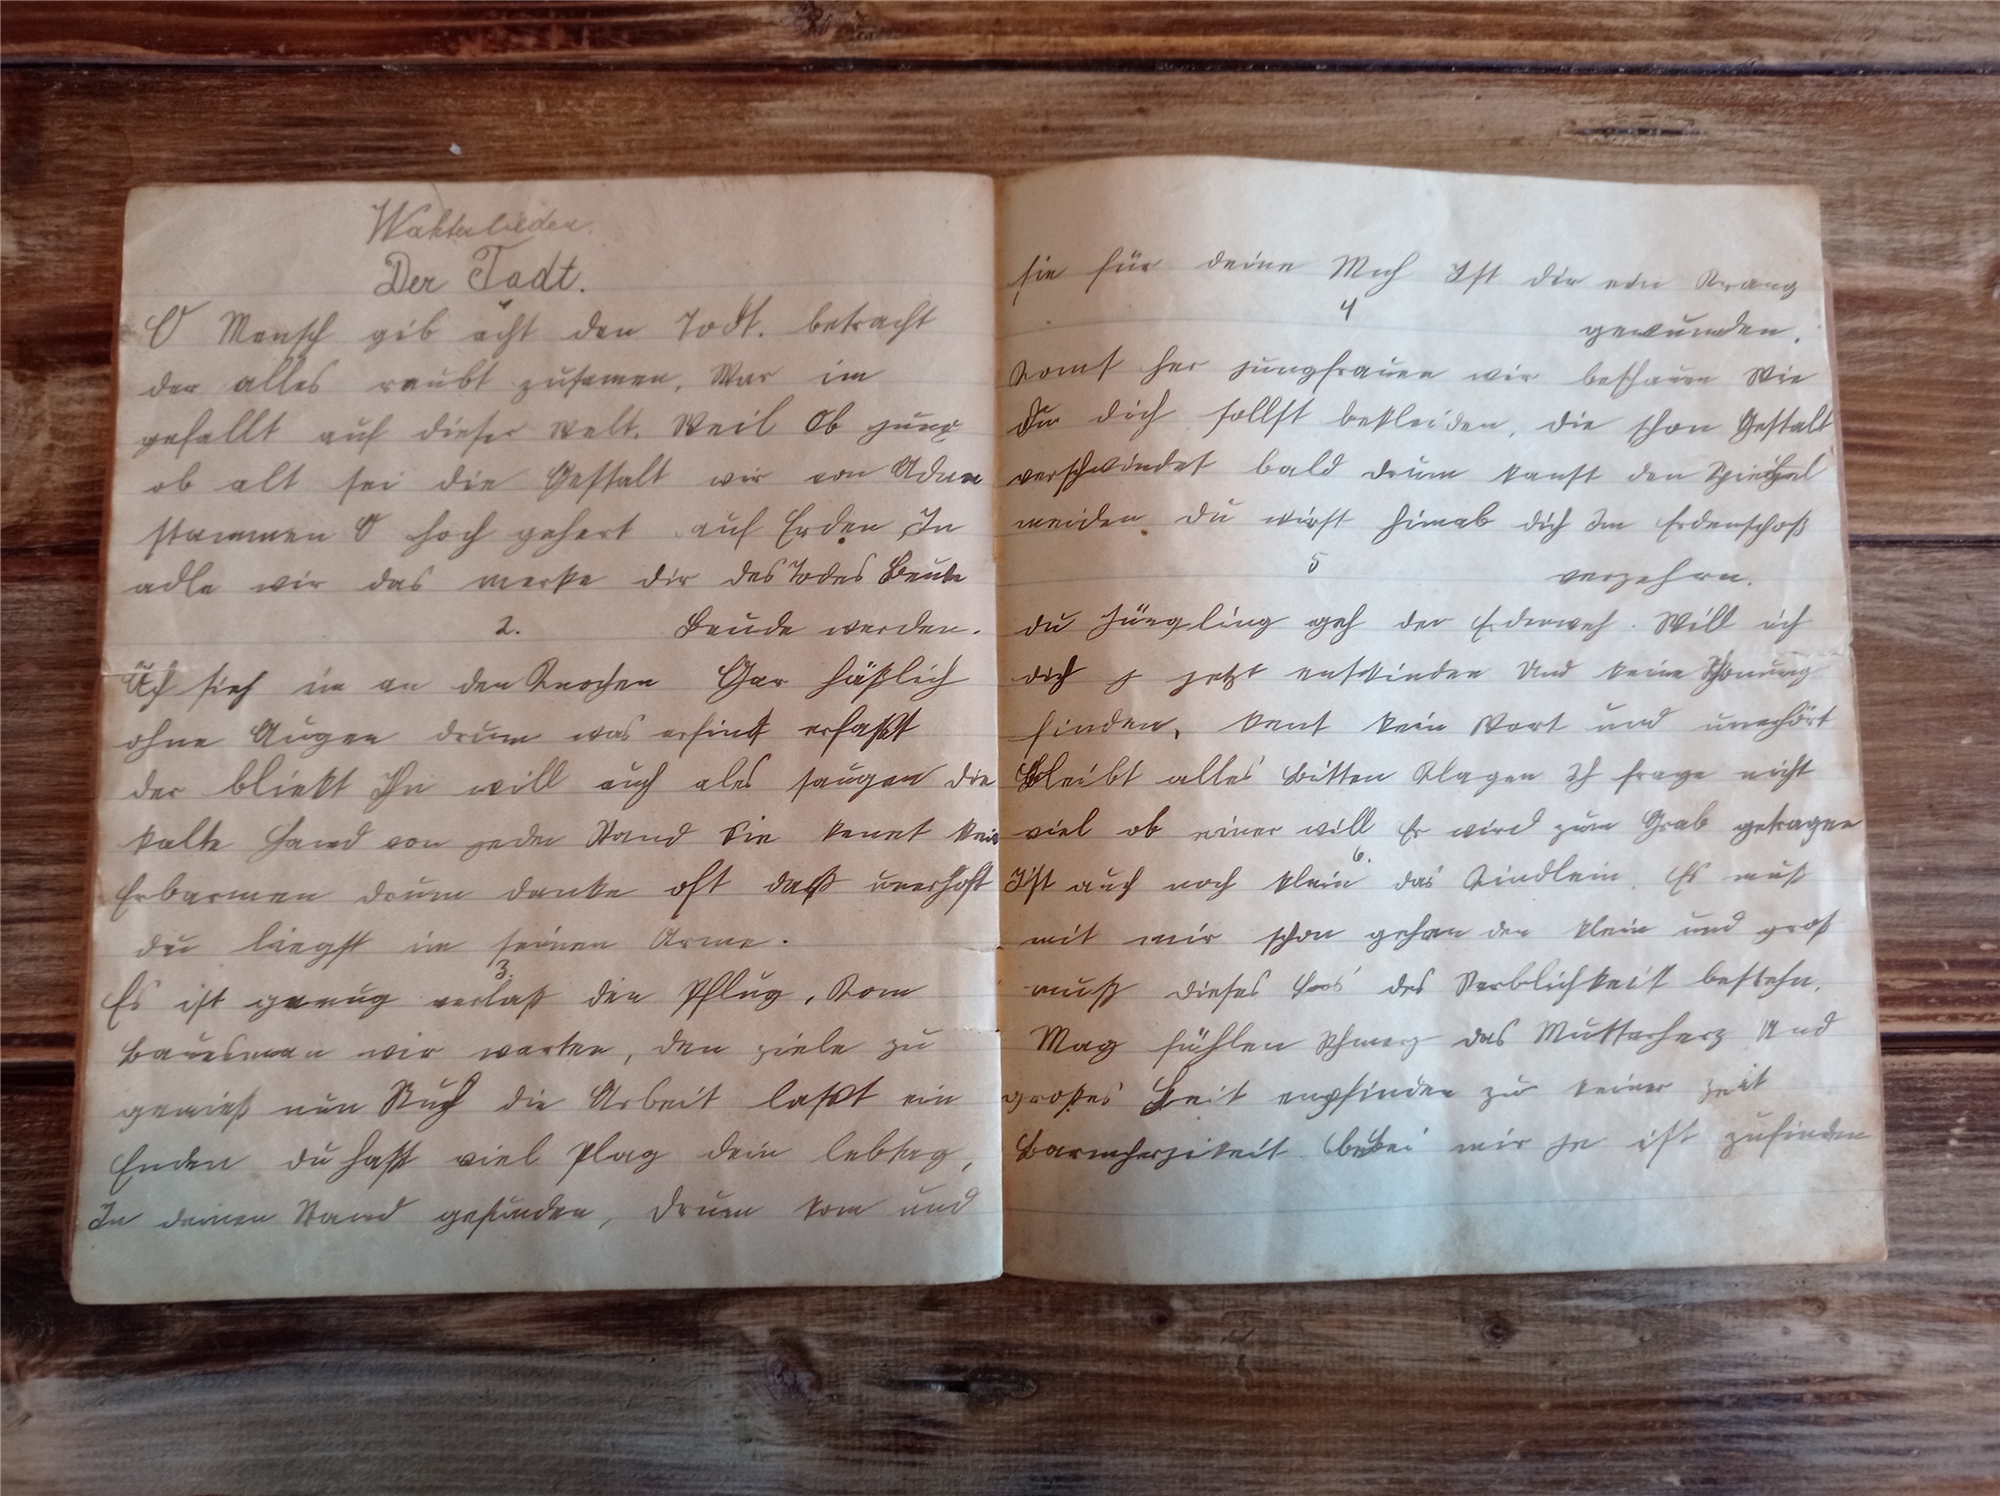 Wakterlieder.
Der Todt.
O Mensch gib acht den Todt. betracht
der alles raubt zusamen, War im
gefallt auf dieser Welt. Weil Ob jung
ob alt sei die Gestalt wir von Adam
stammen O hoch gehert auf Erden In
adle wir das merke dir des Todes Beute
2. Beude werden.
Ach sieh in an den Knochen Gar häßlich
ohne Augen drum was erfind erfaßt
der blickt In will auch ales saugen die
kalte Hand von jeden Stand Sie kennt kein
Erbarmen drum denke oft daß unerhoft
du liegst in seinen Arme.
3.
Es ist genug verlaß den Pflug, Kom
Bauersman wir warten, den ziele zu
genieß nun Ruh die Arbeit laßt ein
Enden du hast viel Plag dein lebtag,
In deinen Stand gefunden, drum kom und
sie für deine Müh Ist dir ein Kranz
4 gewunden.
Komt her jungfrauen wir beschauen Wie
Du dich sollst bekleiden, die schon Gestalt
verschwindet bald drum kanst den Spiechel
meiden du wirst hinab dich Im Erdenschoß
5 verzehrn.
du Jüngling geh der Erderweh. Will ich
dich jetzt entbinden Und keine Schonung
finden, kent kein Wort und unerhört
Bleibt alles Bitten Klagen Ich frage nicht
viel ob einer will Er wird zum Grab getragen
6.
Ist auch noch klein das Kindlein. Es muß
mit mir schon gehen den klein und groß
muß dieses Loos des Sterblichkeit bestehn.
Mag fühlen Schmerz das Mutterherz Und
großes Leit empfinden zu keiner Zeit
Barmherzikeit bei mir je ist zufinden